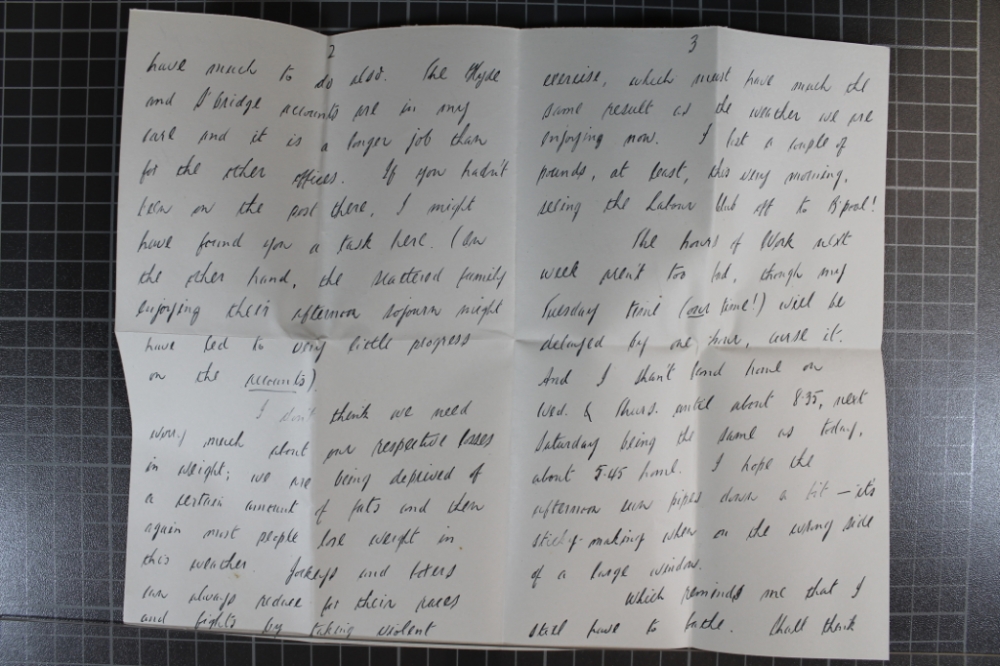 2
have much to do also. The Hyde
and S'bridge accounts are in my
care and it is a longer job than
for the other offices. If you hadn't
been on the post there, I might
have found you a task here. (On
the other hand, the scattered family
enjoying their afternoon sojourn might
have led to very little progress
on the accounts)
I don't think we need
worry much about our respective losses
in weight; we are being deprived of
a certain amount of fats and then
again most people lose weight in
this weather. Jockeys and boxers
can always reduce for their races
and fights by taking violent
3
exercise, which must have much the
same result as the weather we are
enjoying now. I lost a couple of
pounds, at least, this very morning,
seeing the Labour Club off to B'pool!
The hours of Work next
week aren't too bad, though my
Tuesday time (our time!) will be
delayed by one hour, curse it.
And I shan't land home on
Wed. & Thurs. until about 8.35, next
Saturday being the same as today,
about 5.45 home. I hope the
afternoon sun pipes down a bit — it's
sticky-making when on the wrong side
of a large window.
Which reminds me that I
still have to bathe. Shall think